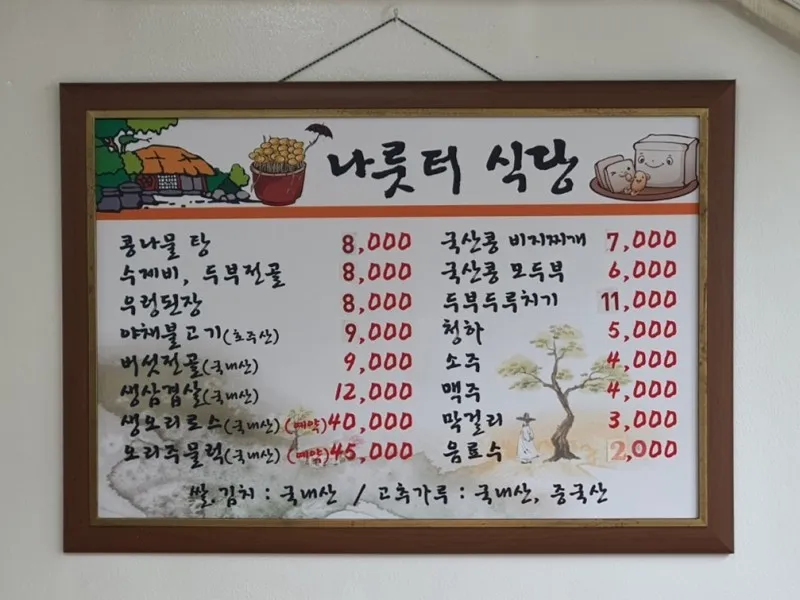 나룻터 식당
콩나물 탕 8,000
수제비, 두부전골 8,000
우렁된장 8,000
야채불고기(호주산) 9,000
버섯전골(국내산) 9,000
생삼겹살(국내산) 12,000
생오리로스(국내산) (예약) 40,000
오리주물럭(국내산) (예약) 45,000
국산콩 비지찌개 7,000
국산콩 모두부 6,000
두부두루치기 11,000
청하 5,000
소주 4,000
맥주 4,000
막걸리 3,000
음료수 2,000
쌀.김치 : 국내산 / 고추가루 : 국내산, 중국산